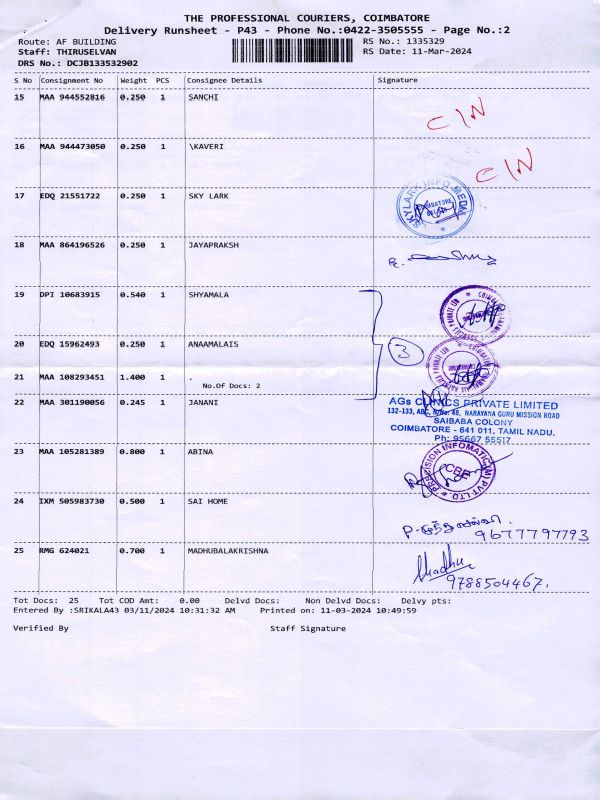 THE PROFESSIONAL COURIERS, COIMBATORE
Delivery Runsheet - P43 - Phone No.:0422-3505555 - Page No.:2
Route: AF BUILDING RS No.: 1335329
Staff: THIRUSELVAN RS Date: 11-Mar-2024
DRS No.: DCJB133532902
S No Consignment No Weight PCS Consignee Details Signature
15 MAA 944552816 0.250 1 SANCHI
C/N
16 MAA 944473050 0.250 1 \KAVERI
C/N
17 EDQ 21551722 0.250 1 SKY LARK
SKYLARK INFO MEDIA
18 MAA 864196526 0.250 1 JAYAPRAKSH
19 DPI 10683915 0.540 1 SHYAMALA
20 EDQ 15962493 0.250 1 ANAAMALAIS
3
21 MAA 108293451 1.400 1 .
No.Of Docs: 2
22 MAA 301190056 0.245 1 JANANI
AGs CLINICS PRIVATE LIMITED
132-133, ABC, N/No: 48, NARAYANA GURU MISSION ROAD
SAIBABA COLONY
COIMBATORE - 641 011, TAMIL NADU.
Ph: 95667 55517
23 MAA 105281389 0.800 1 ABINA
CBE
24 IXM 505983730 0.500 1 SAI HOME
9677797793
25 RMG 624021 0.700 1 MADHUBALAKRISHNA
Madhu
9788504467.
Tot Docs: 25 Tot COD Amt: 0.00 Delvd Docs: Non Delvd Docs: Delvy pts:
Entered By :SRIKALA43 03/11/2024 10:31:32 AM Printed on: 11-03-2024 10:49:59
Verified By Staff Signature